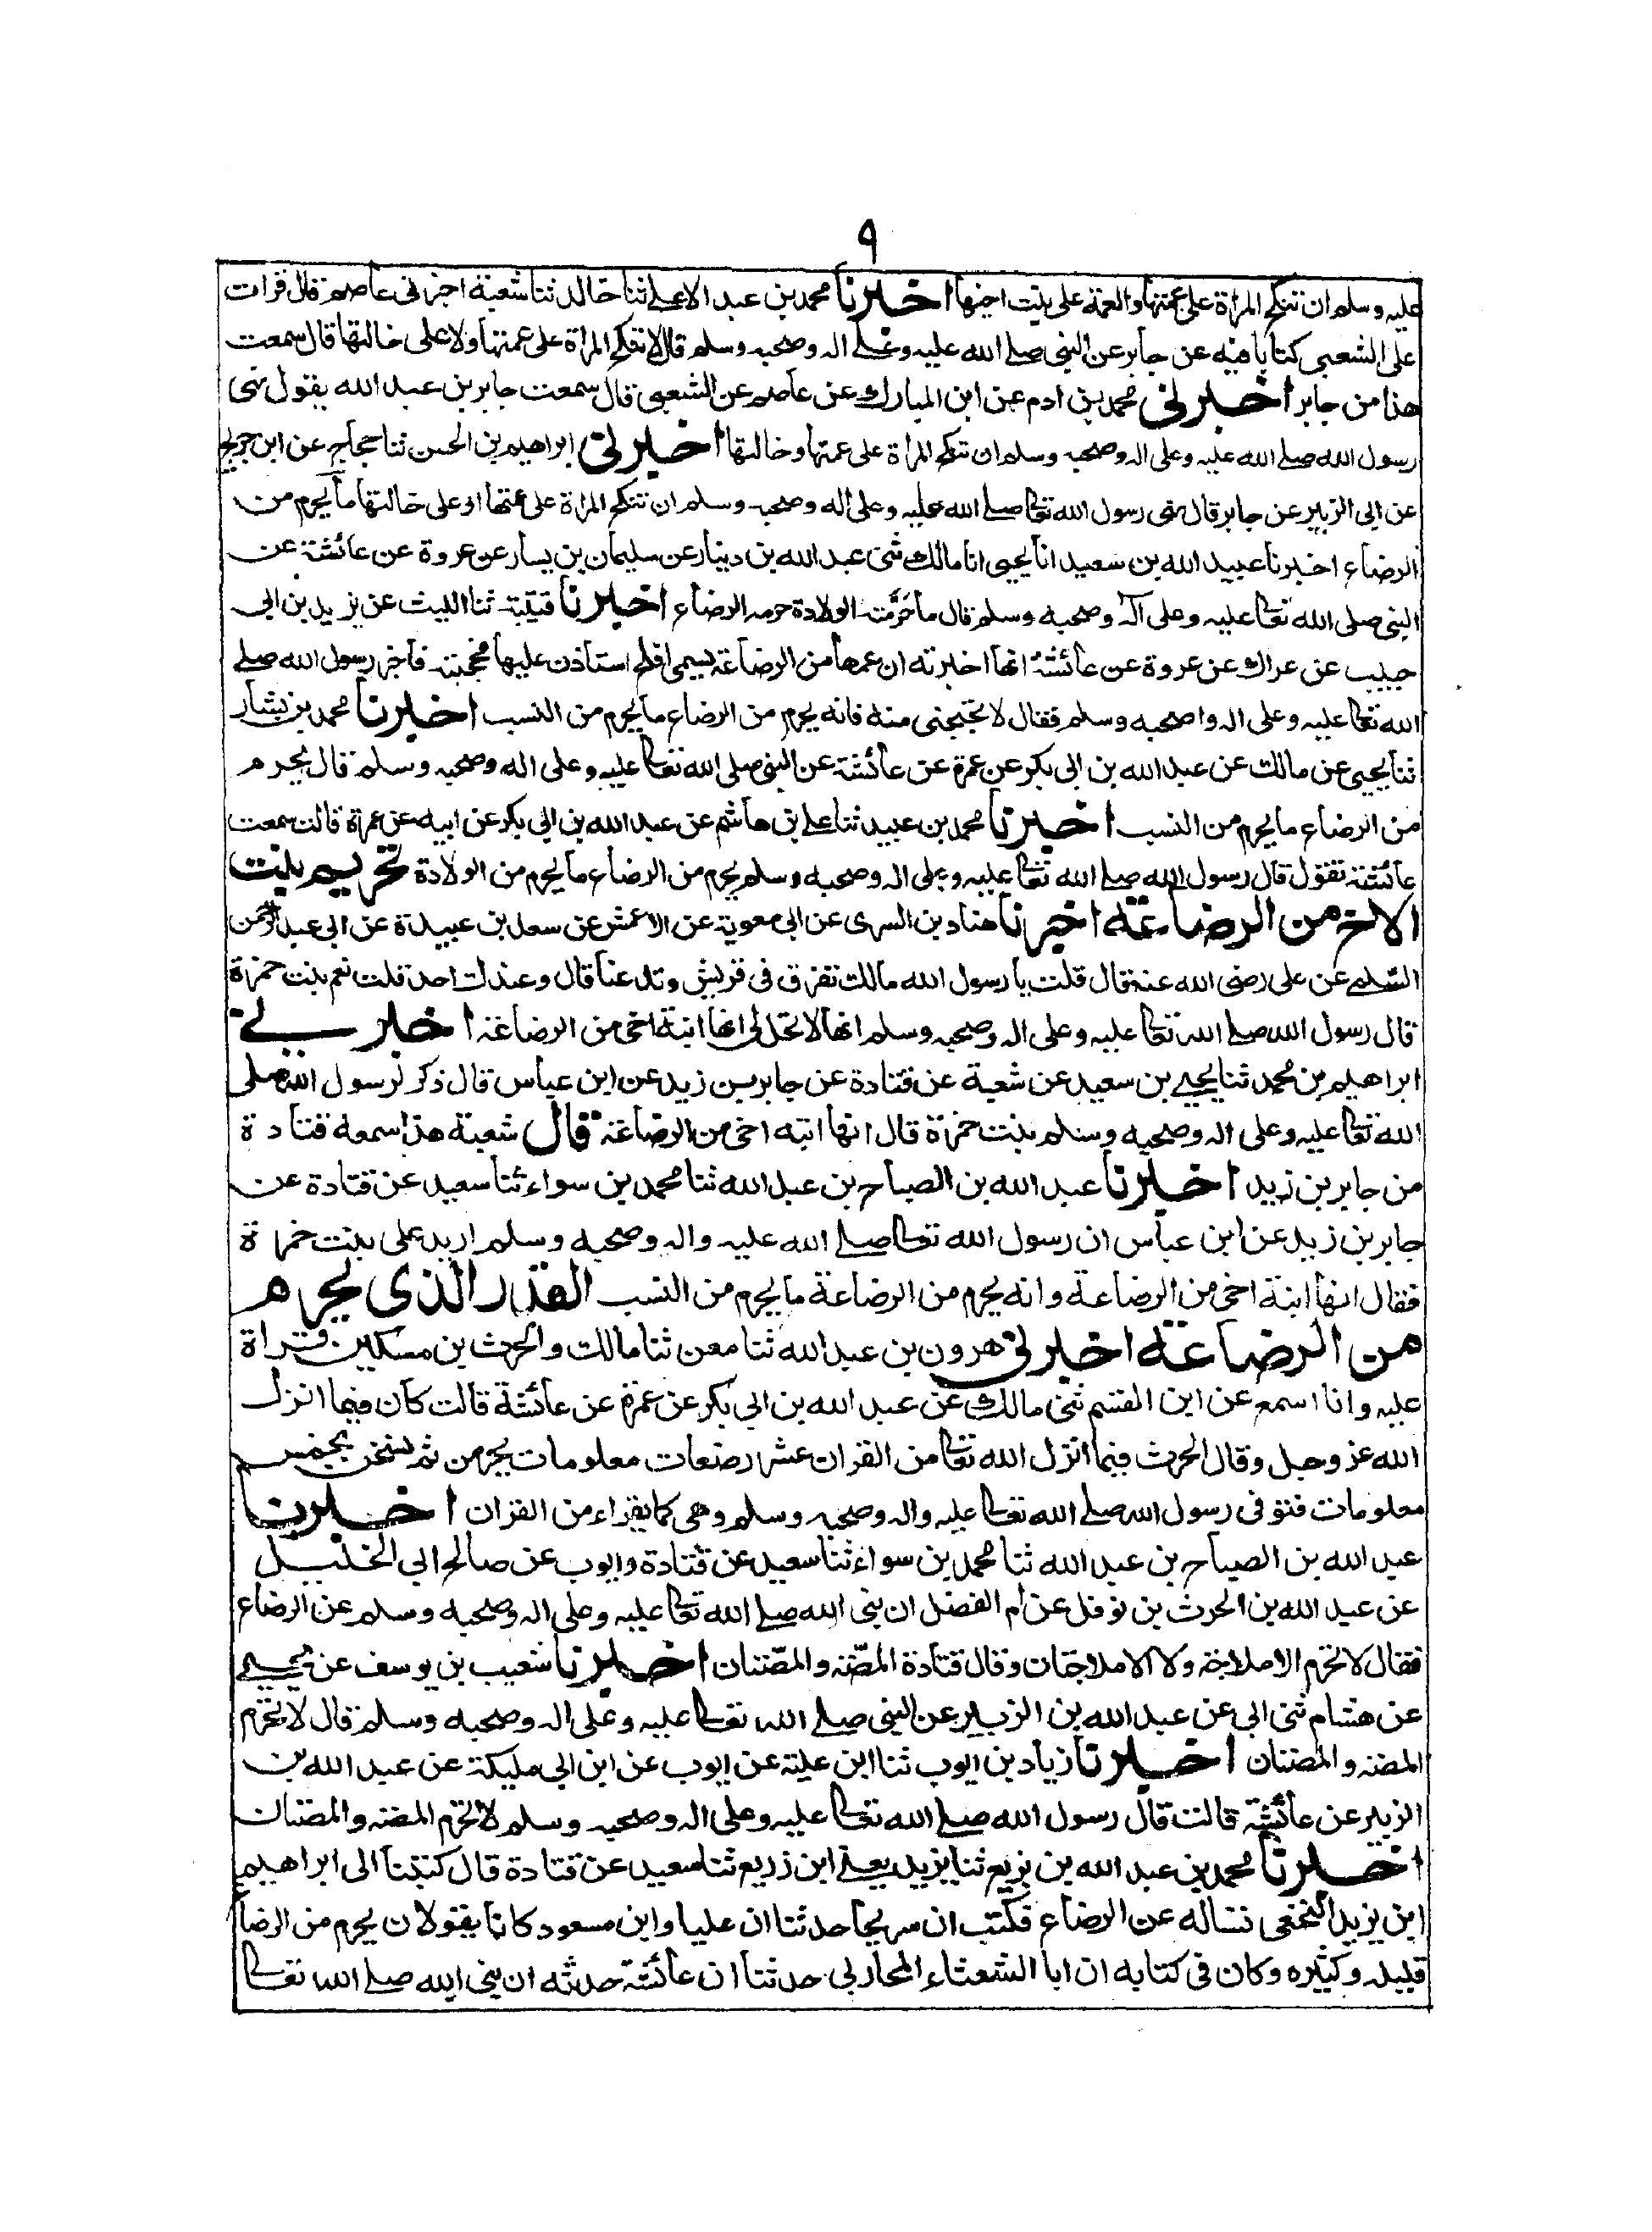 ٩
عليه وسلم ان تنكح المراة على عمتها والعمة على بنت اخيها اخبرنا محمد بن عبد الاعلى ثنا خالد ثنا شعبة اخبرنى عاصم قال قرات
على الشعبى كتابا فيه عن جابر عن النبى صلے الله عليه وعلے اله وصحبه وسلم قال لا تنكح المراة على عمتها ولا على خالتها قال سمعت
هذا من جابر اخبرنى محمد بن ادم عن ابن المبارك عن عاصم عن الشعبى قال سمعت جابر بن عبد الله يقول نهى
رسول الله صلے الله عليه وعلى اله وصحبه وسلم ان تنكح المراة على عمتها وخالتها اخبرنى ابراهيم بن الحسن ثنا حجاج عن ابن جريج
عن ابى الزبير عن جابر قال نهى رسول الله تعالى صلے الله عليه وعلى اله وصحبه وسلم ان تنكح المراة على عمتها او على خالتها ما يحرم من
الرضاع اخبرنا عبيد الله بن سعيد انا يحيى انا مالك ثنى عبد الله بن دينار عن سليمان بن يسار عن عروة عن عائشة عن
النبى صلى الله تعالى عليه وعلى اله وصحبه وسلم قال ما حَرَّمَتْه الولادة حرمه الرضاع اخبرنا قتيبة ثنا الليث عن يزيد بن ابى
حبيب عن عراك عن عروة عن عائشة انها اخبرته ان عمها من الرضاعة يسمى افلح استاذن عليها فحجبته فاخبر رسول الله صلے
الله تعالى عليه وعلى اله واصحبه وسلم فقال لا تحتجبى منه فانه يحرم من الرضاع ما يحرم من النسب اخبرنا محمد بن بشار
ثنا يحيى عن مالك عن عبد الله بن ابى بكر عن عمرة عن عائشة عن النبى صلى الله تعالى عليه وعلى اله وصحبه وسلم قال يحرم
من الرضاع ما يحرم من النسب اخبرنا محمد بن عبيد ثنا على بن هاشم عن عبد الله بن ابى بكر عن ابيه عن عمرة قالت سمعت
عائشة تقول قال رسول الله صلے الله تعالى عليه وعلى اله وصحبه وسلم يحرم من الرضاع ما يحرم من الولادة تحريم بنت
الاخ من الرضاعة اخبرنا هناد بن السرى عن ابى معوية عن الاعمش عن سعد بن عبيدة عن ابى عبد الرحمن
السلمے عن على رضى الله عنه قال قلت يا رسول الله مالك تنوق فى قريش وتدعنا قال وعندك احد قلت نعم بنت حمزة
قال رسول الله صلے الله تعالى عليه وعلى اله وصحبه وسلم انها لا تحل لى انها ابنة اخى من الرضاعة اخبرنے
ابراهيم بن محمد ثنا يحيے بن سعيد عن شعبة عن قتادة عن جابر بن زيد عن ابن عباس قال ذكر لرسول الله صلى
الله تعالى عليه وعلى اله وصحبه وسلم بنت حمزة قال انها ابنة اخى من الرضاعة قال شعبة هذا سمعه قتادة
من جابر بن زيد اخبرنا عبد الله بن الصباح بن عبد الله ثنا محمد بن سواء ثنا سعيد عن قتادة عن
جابر بن زيد عن ابن عباس ان رسول الله تعالى صلے الله عليه واله وصحبه وسلم اريد على بنت حمزة
فقال انها ابنة اخى من الرضاعة وانه يحرم من الرضاعة ما يحرم من النسب القدر الذى يحرم
من الرضاعة اخبرنى هرون بن عبد الله ثنا معن ثنا مالك والحرث بن مسكين قراة
عليه وانا اسمع عن ابن القسم ثنى مالك عن عبد الله بن ابى بكر عن عمرة عن عائشة قالت كان فيما انزل
الله عز وجل وقال الحرث فيما انزل الله تعالى من القران عشر رضعات معلومات يحرمن ثم نسخن بخمس
معلومات فتوفى رسول الله صلے الله تعالى عليه واله وصحبه وسلم وهى مما يقراء من القران اخبرنا
عبد الله بن الصباح بن عبد الله ثنا محمد بن سواء ثنا سعيد عن قتادة وايوب عن صالح ابى الخليل
عن عبد الله بن الحرث بن نوفل عن ام الفضل ان نبى الله صلے الله تعالى عليه وعلى اله وصحبه وسلم عن الرضاع
فقال لا تحرم الاملاجة ولا الاملاجتان وقال قتادة المصّة والمصّتان اخبرنا شعيب بن يوسف عن يحيے
عن هشام ثنى ابى عن عبد الله بن الزبير عن النبى صلے الله تعالى عليه وعلى اله وصحبه وسلم قال لا تحرم
المصة والمصتان اخبرنا زياد بن ايوب ثنا ابن علية عن ايوب عن ابن ابى مليكة عن عبد الله بن
الزبير عن عائشة قالت قال رسول الله صلے الله تعالى عليه وعلى اله وصحبه وسلم لا تحرم المصة والمصتان
اخبرنا محمد بن عبد الله بن بزيع ثنا يزيد يعنے ابن زريع ثنا سعيد عن قتادة قال كتبنا الى ابراهيم
ابن يزيد النخعى نساله عن الرضاع فكتب ان سريحا حدثنا ان عليا وابن مسعود كانا يقولان يحرم من الرضاع
قليله وكثيره وكان فى كتابه ان ابا الشعثاء المحاربى حدثنا ان عائشة حدثته ان نبى الله صلے الله تعالى